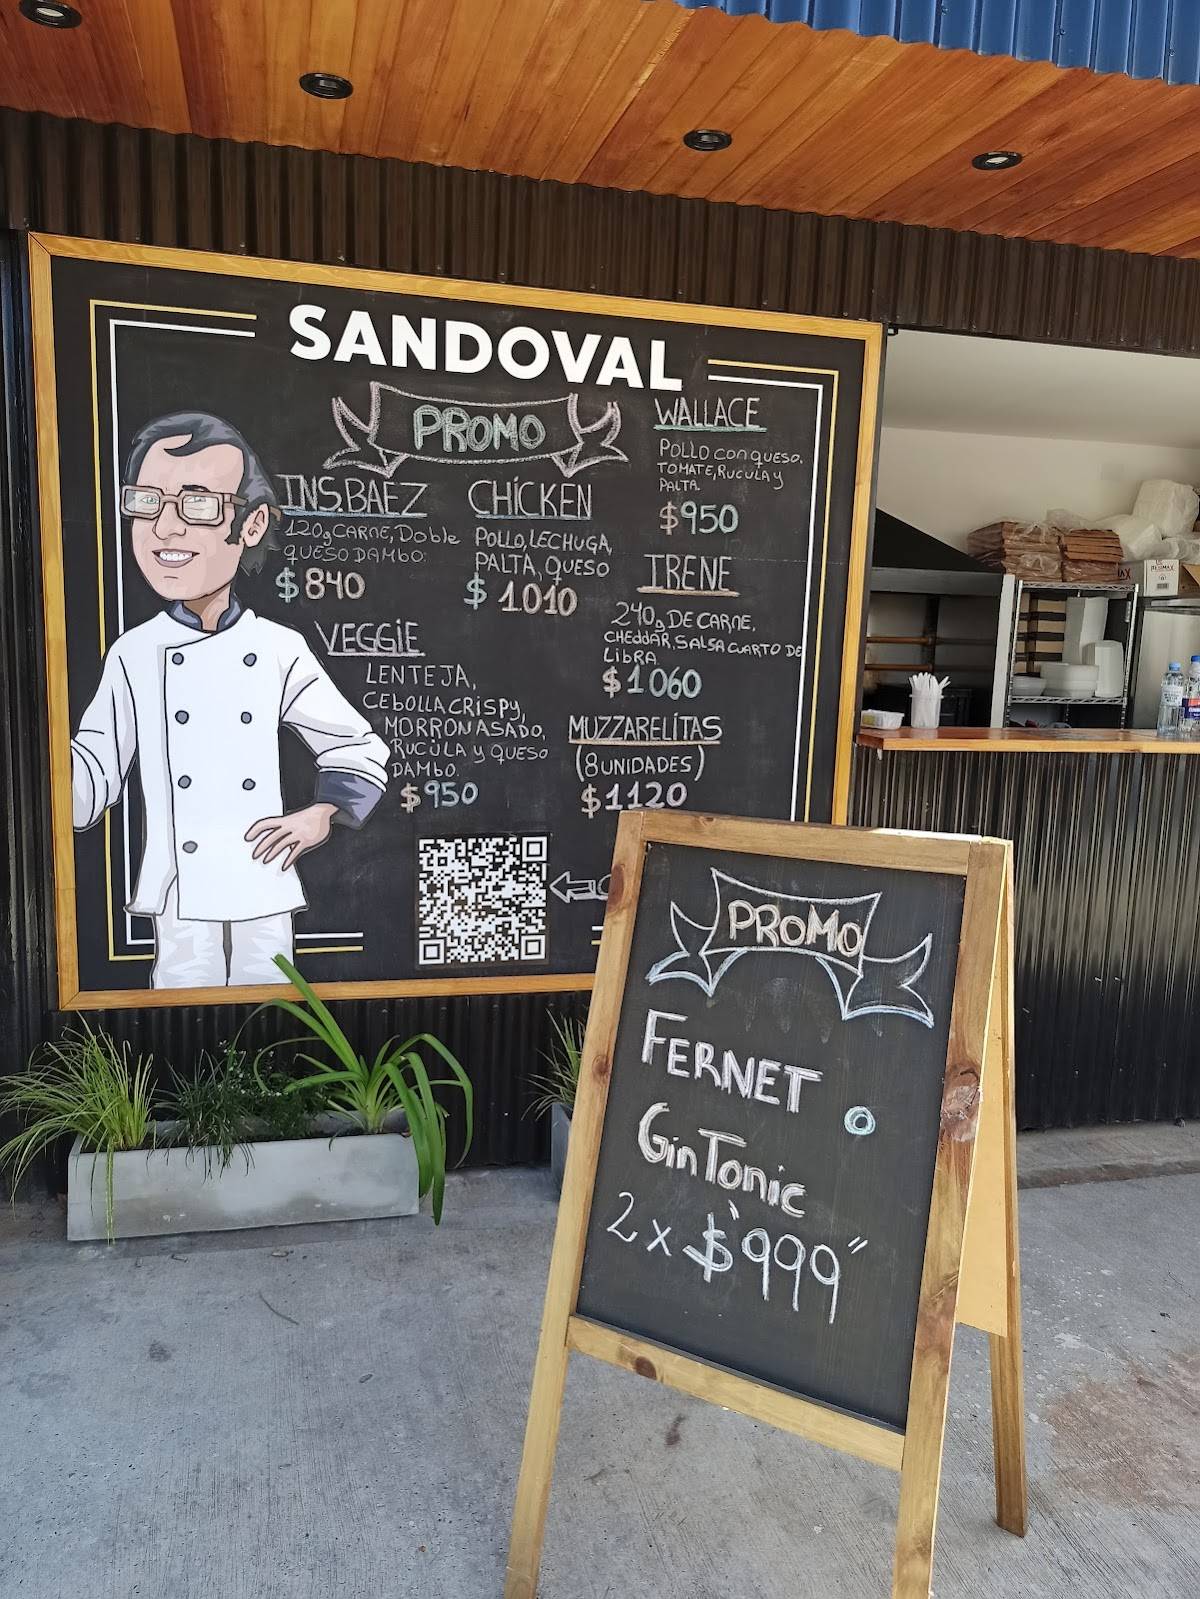 SANDOVAL
PROMO
INS.BAEZ
120g CARNE, Doble
QUESO DAMBO.
$840
CHICKEN
POLLO, LECHUGA,
PALTA, QUESO
$1010
VEGGIE
LENTEJA,
CEBOLLA CRISPY,
MORRON ASADO,
RUCULA y QUESO
DAMBO.
$950
WALLACE
POLLO con queso.
TOMATE, RUCULA y
PALTA.
$950
IRENE
240g DE CARNE,
CHEDDAR, SALSA CUARTO DE
LIBRA
$1060
MUZZARELITAS
(8 UNIDADES)
$1120
PROMO
FERNET
o
Gin Tonic
2 x $"999"